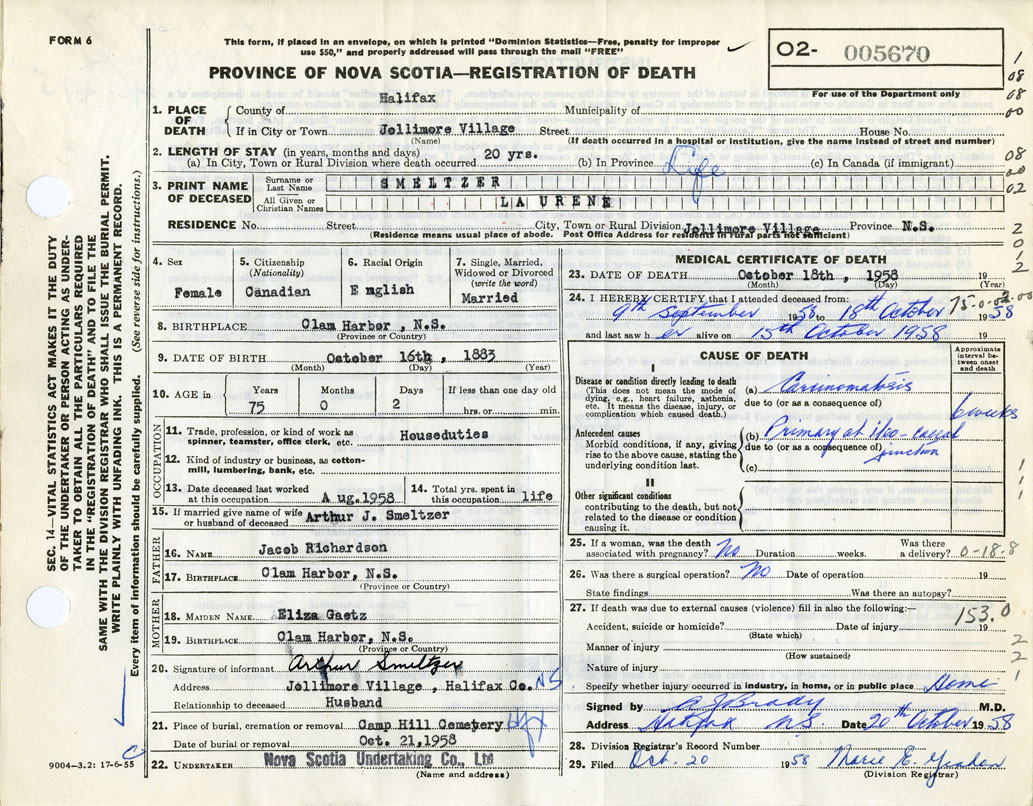 FORM 6
This form, if placed in an envelope, on which is printed "Dominion Statistics—Free, penalty for improper
use $50," and properly addressed will pass through the mail "FREE"
O2- 005670
For use of the Department only
PROVINCE OF NOVA SCOTIA—REGISTRATION OF DEATH
1. PLACE OF DEATH
County of Halifax Municipality of
If in City or Town Jollimore Village Street House No.
(Name) (If death occurred in a hospital or institution, give the name instead of street and number)
2. LENGTH OF STAY (in years, months and days)
(a) In City, Town or Rural Division where death occurred 20 yrs. (b) In Province Life (c) In Canada (if immigrant)
3. PRINT NAME OF DECEASED
Surname or Last Name SMELTZER
All Given or Christian Names LAURENE
RESIDENCE No. Street City, Town or Rural Division Jollimore Village Province N.S.
(Residence means usual place of abode. Post Office Address for residents in rural parts not sufficient)
4. Sex Female
5. Citizenship (Nationality) Canadian
6. Racial Origin English
7. Single, Married, Widowed or Divorced (write the word) Married
8. BIRTHPLACE Clam Harbor, N.S.
(Province or Country)
9. DATE OF BIRTH October 16th, 1883
(Month) (Day) (Year)
10. AGE in Years 75 Months 0 Days 2 If less than one day old hrs. or min.
OCCUPATION
11. Trade, profession, or kind of work as spinner, teamster, office clerk, etc. Houseduties
12. Kind of industry or business, as cotton-mill, lumbering, bank, etc.
13. Date deceased last worked at this occupation Aug.1958
14. Total yrs. spent in this occupation life
15. If married give name of wife or husband of deceased Arthur J. Smeltzer
FATHER
16. NAME Jacob Richardson
17. BIRTHPLACE Clam Harbor, N.S.
(Province or Country)
MOTHER
18. MAIDEN NAME Eliza Gaetz
19. BIRTHPLACE Clam Harbor, N.S.
(Province or Country)
20. Signature of informant Arthur Smeltzer
Address Jollimore Village, Halifax Co. NS
Relationship to deceased Husband
21. Place of burial, cremation or removal Camp Hill Cemetery Hfx
Date of burial or removal Oct. 21,1958
22. UNDERTAKER Nova Scotia Undertaking Co., Ltd
(Name and address)
9004—3.2: 17-6-55
MEDICAL CERTIFICATE OF DEATH
23. DATE OF DEATH October 18th, 1958 19
(Month) (Day) (Year)
24. I HEREBY CERTIFY that I attended deceased from: 75.0.02.00
9th September 1958 to 18th October 1958
and last saw her alive on 15th October 1958 19
CAUSE OF DEATH
Approximate interval between onset and death
I
Disease or condition directly leading to death
(This does not mean the mode of dying, e.g., heart failure, asthenia, etc. It means the disease, injury, or complication which caused death.)
(a) Carcinomatosis
due to (or as a consequence of) 6 weeks
Antecedent causes
Morbid conditions, if any, giving rise to the above cause, stating the underlying condition last.
(b) Primary at ileo-caecal junction
due to (or as a consequence of)
(c)
II
Other significant conditions
contributing to the death, but not related to the disease or condition causing it.
25. If a woman, was the death associated with pregnancy? No Duration weeks. Was there a delivery? 0-18-8
26. Was there a surgical operation? No Date of operation 19
State findings Was there an autopsy?
27. If death was due to external causes (violence) fill in also the following:— 153.0
Accident, suicide or homicide? Date of injury 19
(State which)
Manner of injury
(How sustained)
Nature of injury
Specify whether injury occurred in industry, in home, or in public place Home
Signed by A J Brady M.D.
Address Halifax N.S. Date 20th October 1958
28. Division Registrar's Record Number
29. Filed Oct. 20 1958 Marie E.
(Division Registrar)
SEC. 14—VITAL STATISTICS ACT MAKES IT THE DUTY
OF THE UNDERTAKER OR PERSON ACTING AS UNDER-
TAKER TO OBTAIN ALL THE PARTICULARS REQUIRED
IN THE "REGISTRATION OF DEATH" AND TO FILE THE
SAME WITH THE DIVISION REGISTRAR WHO SHALL ISSUE THE BURIAL PERMIT.
WRITE PLAINLY WITH UNFADING INK. THIS IS A PERMANENT RECORD.
Every item of information should be carefully supplied. (See reverse side for instructions.)
1
08
08
00
08
00
02
2
0
1
2
1
1
1
2
2
1